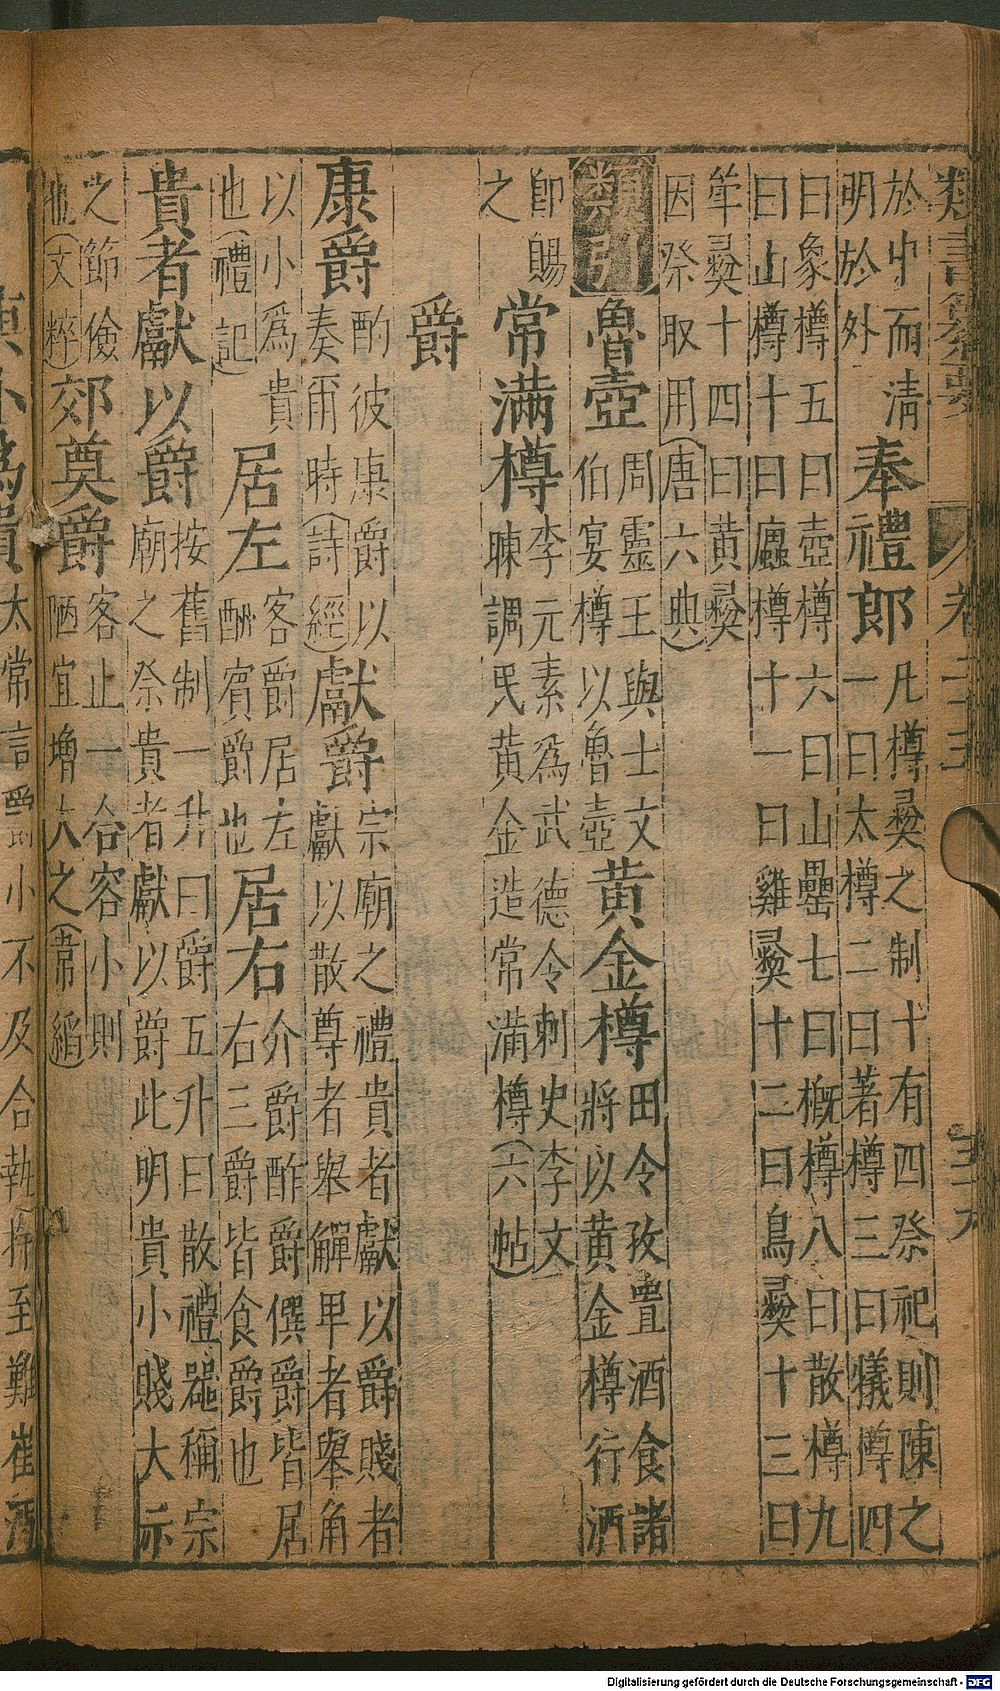 類書纂要 卷二十五 三十六
於中而清
明於外
奉禮郎
凡樽彜之制十有四祭祀則陳之
一曰太樽二曰著樽三曰犧樽四
曰象樽五曰壺樽六曰山罍七曰概樽八曰散樽九
曰山樽十曰蜃樽十一曰雞彜十二曰鳥彜十三曰
斝彜十四曰黃彜
因祭取用(唐六典)
類引
魯壺
周靈王與士文
伯宴樽以魯壺
黃金樽
田令孜置酒食諸
將以黃金樽行酒
即賜
之
常滿樽
李元素為武德令刺史李文
暕調民黃金造常滿樽(六帖)
爵
康爵
酌彼康爵以
奏爾時(詩經)
獻爵
宗廟之禮貴者獻以爵賤者
獻以散尊者舉觶卑者舉角
以小爲貴
也(禮記)
居左
客爵居左
酬賓爵也
居右
介爵酢爵僎爵皆居
右三爵皆食爵也
貴者獻以爵
按舊制一升曰爵五升曰散禮器稱宗
廟之祭貴者獻以爵此明貴小賤大示
之節儉
也(文粹)
郊奠爵
客止一合容小則
陋宜增大之(韋縚)
太常言爵小不及合執持至難崔沔
Digitalisierung gefördert durch die Deutsche Forschungsgemeinschaft - DFG